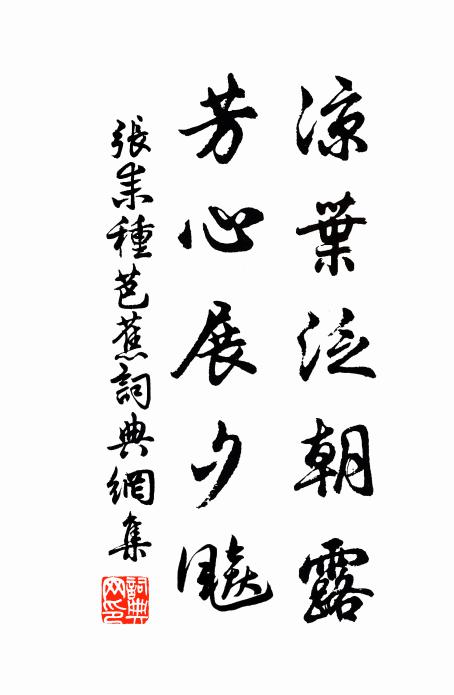 涼葉泛朝露
芳心展夕飈
張耒種芭蕉詞典網集
詞典網印